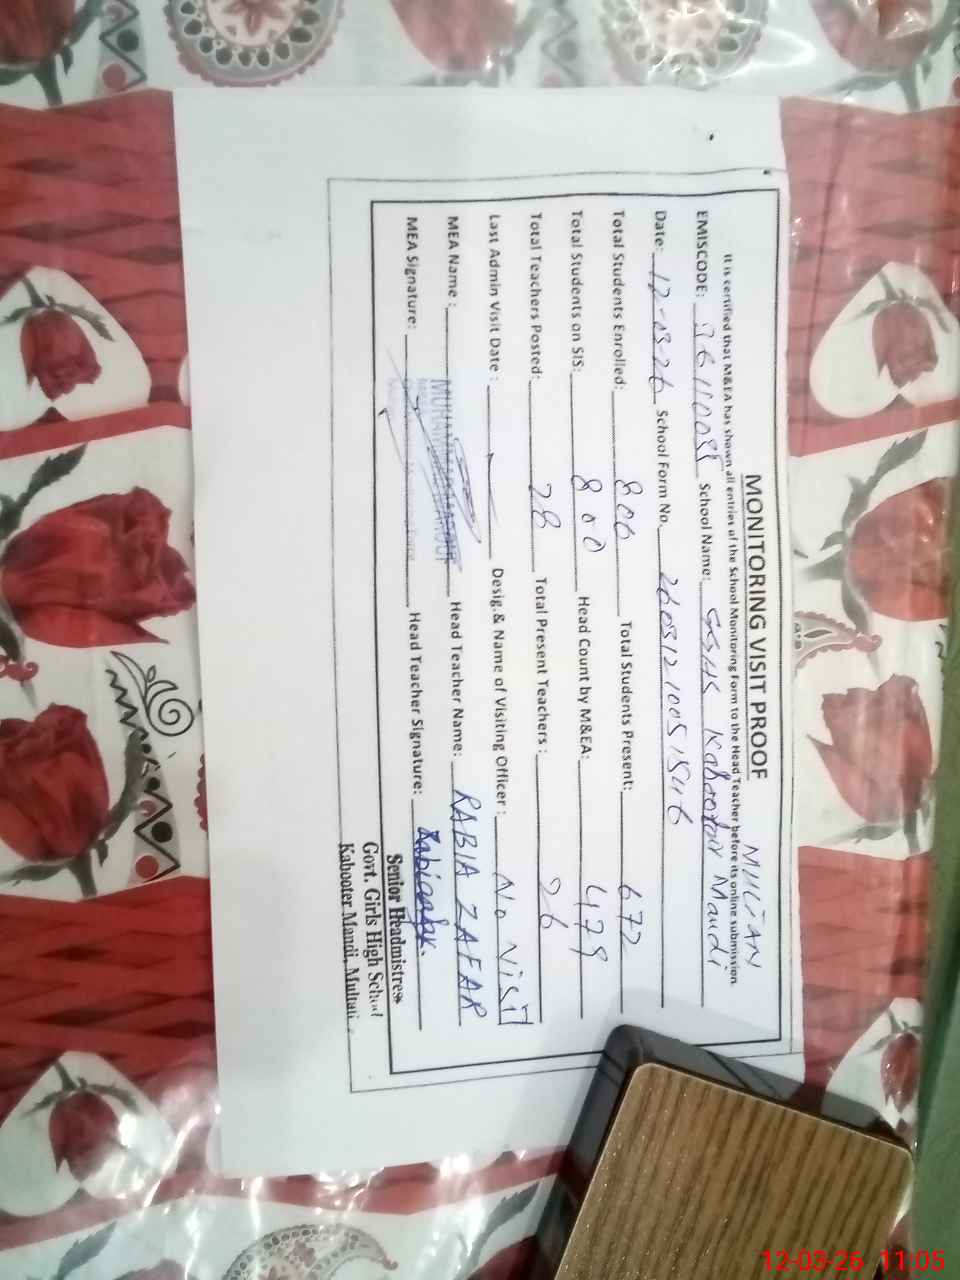 MONITORING VISIT PROOF
It is certified that M&EA has shown all entries of the School Monitoring Form to the Head Teacher before its online submission.
MULTAN
EMISCODE: School Name: GGHS Kabootar Mandi
Date: 12-03-26 School Form No.
Total Students Enrolled: 806 Total Students Present: 672
Total Students on SIS: 800 Head Count by M&EA: 479
Total Teachers Posted: 28 Total Present Teachers : 26
Last Admin Visit Date : Desig.& Name of Visiting Officer : No Visit
MEA Name : Head Teacher Name: RABIA ZAFAR
MEA Signature: Head Teacher Signature:
Senior Headmistress
Govt. Girls High School
Kabooter Mandi, Multan
12-03-26 11:05